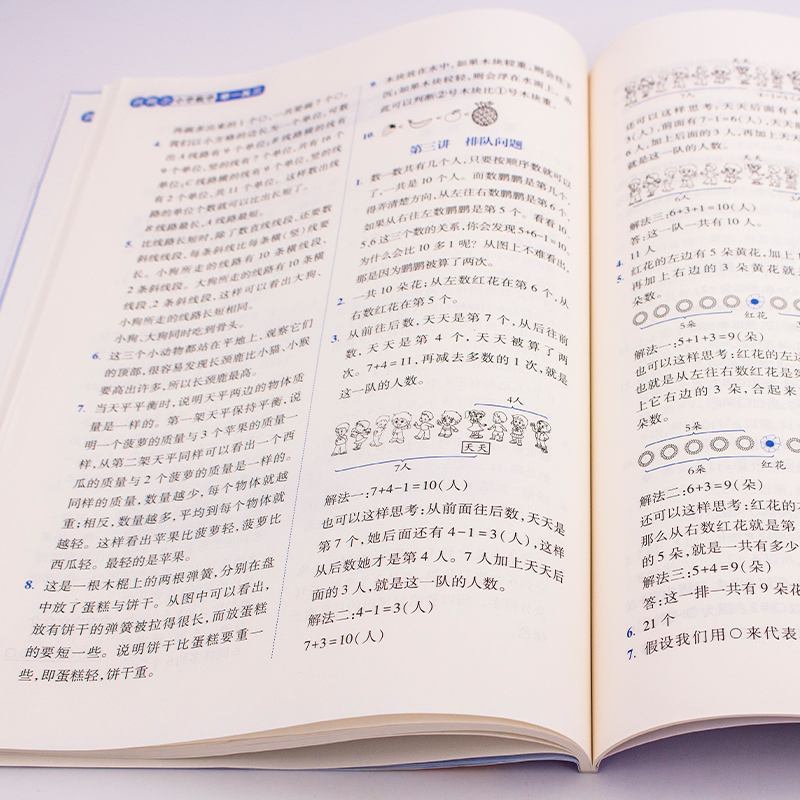 小学数学 举一反三
再画多出来的1个○,一共要画7个○。
4. 我们以小方格的边长为一个单位,可数
出A线路有9个单位;B线路横的线有
9个单位,竖的线有7个单位,共有16个
单位;C线路横的线有9个单位,竖的线
有2个单位,共11个单位。这样数出线
路的单位个数就可以比出长短了。
B线路最长,A线路最短。
5. 比线路长短时,除了数直线线段,还要数
斜线线段,每条斜线比每条横(竖)线要
长。小狗所走的线路有10条横线段、
2条斜线段。大狗所走的线路有10条横
线段、2条斜线段,这样可以看出大狗、
小狗所走的线路长短相同。
小狗、大狗同时吃到骨头。
6. 这三个小动物都站在平地上,观察它们
的顶部,很容易发现长颈鹿比小猫、小猴
要高出许多,所以长颈鹿最高。
7. 当天平平衡时,说明天平两边的物体质
量是一样的。第一架天平保持平衡,说
明一个菠萝的质量与3个苹果的质量一
样,从第二架天平同样可以看出一个西
瓜的质量与2个菠萝的质量是一样的。
同样的质量,数量越少,每个物体就越
重;相反,数量越多,平均到每个物体就
越轻。这样看出苹果比菠萝轻,菠萝比
西瓜轻。最轻的是苹果。
8. 这是一根木棍上的两根弹簧,分别在盘
中放了蛋糕与饼干。从图中可以看出,
放有饼干的弹簧被拉得很长,而放蛋糕
的要短一些。说明饼干比蛋糕要重一
些,即蛋糕轻,饼干重。
9. 木块放在水中,如果木块较重,则会往下
沉;如果木块较轻,则会浮在水面上。由
此可以判断②号木块比①号木块重。
10.
第三讲 排队问题
1. 数一数共有几个人,只要按顺序数就可以
了,一共是10个人。而数鹏鹏是第几个,
得弄清楚方向,从左往右数鹏鹏是第6个,
如果从右往左数鹏鹏是第5个。看看10、
5、6这三个数的关系,你会发现5+6-1=10。
为什么会比10多1呢?从图上不难看出,
那是因为鹏鹏被算了两次。
2. 一共10朵花;从左数红花在第6个,从
右数红花在第5个。
3. 从前往后数,天天是第7个,从后往前
数,天天是第4个,天天被算了两
次。7+4=11,再减去多数的1次,就是
这一队的人数。
4人
天天
7人
解法一:7+4-1=10(人)
也可以这样思考:从前面往后数,天天是
第7个,她后面还有4-1=3(人),这样
从后数她才是第4人。7人加上天天后
面的3人,就是这一队的人数。
解法二:4-1=3(人)
7+3=10(人)
天天
还可以这样思考:天天后面有4
3(人),前面有7-1=6(人),天天
6人,加上后面的3人,再加上天天
就是这一队的人数。
天天
6人
解法三:6+3+1=10(人)
答:这一队一共有10人。
4. 11人
5. 红花的左边有5朵黄花,加上
再加上右边的3朵黄花就
朵数。
5朵 红花
解法一:5+1+3=9(朵)
也可以这样思考:红花的左
也就是从左往右数红花是
上它右边的3朵,合起来
朵数。
5朵
6朵 红花
解法二:6+3=9(朵)
还可以这样思考:红花的
那么从右数红花就是第
的5朵,就是一共有多少
解法三:5+4=9(朵)
答:这一排一共有9朵花
6. 21个
7. 假设我们用○来代表